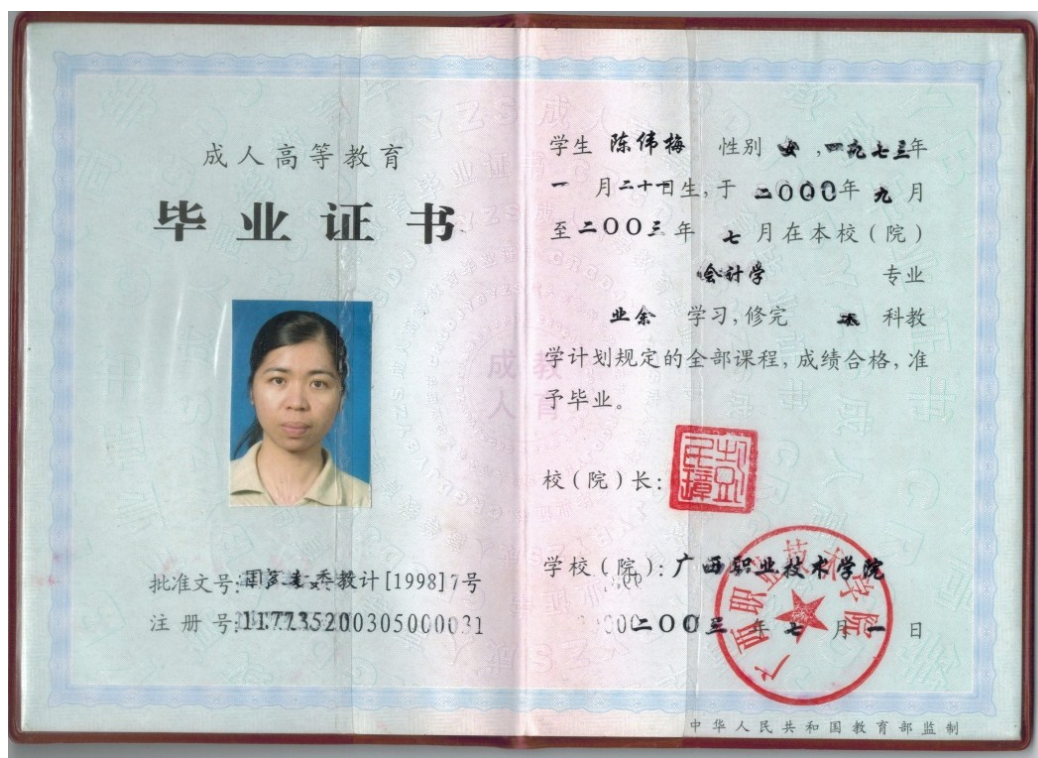 成人高等教育
毕业证书
批准文号: 教计[1998]7号
注册号:117735200305000031
学生 陈伟梅 性别 女,一九七三年
一月二十一日生,于二000年九月
至二00三年 七月在本校(院)
会计学 专业
业余 学习,修完 科教
学计划规定的全部课程,成绩合格,准
予毕业。
校(院)长:
学校(院):广西职业技术学院
二00三年七月一日
广西职业技术学院
中华人民共和国教育部监制
成教
人育